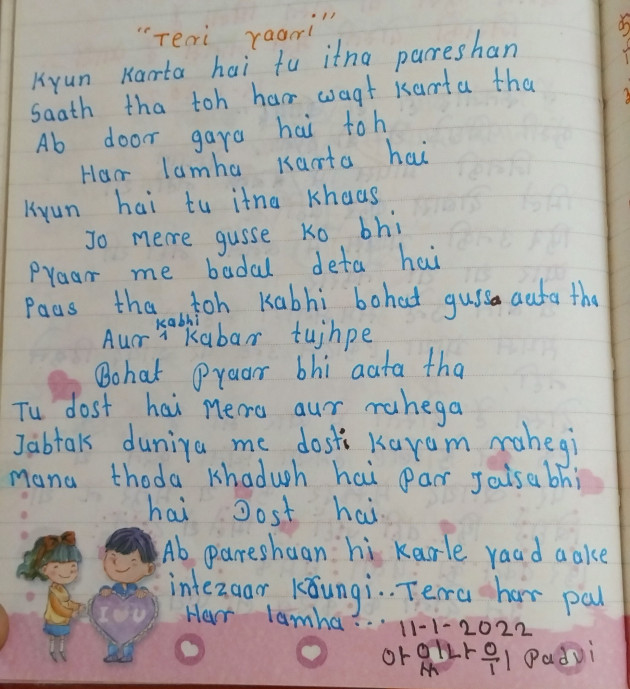 "Teri yaari"
Kyun Karta hai tu itna pareshan
Saath tha toh har waqt Karta tha
Ab door gaya hai toh
Harr lamha Karta hai
Kyun hai tu itna Khaas
Jo mere gusse Ko bhi
Pyaar me badal deta hai
Paas tha toh Kabhi bohat gussa aata tha
Aur Kabhi Kabar tujhpe
Bohat Pyaar bhi aata tha
Tu dost hai Mera aur rahega
Jabtak duniya me dosti Kayam rahegi
Mana thoda Khadush hai Par Jaisa bhi
hai Dost hai
Ab pareshaan hi Karle yaad aake
intezaar Karungi.. Tera har pal
Harr lamha...
I ♥ U
11-1-2022
Padvi